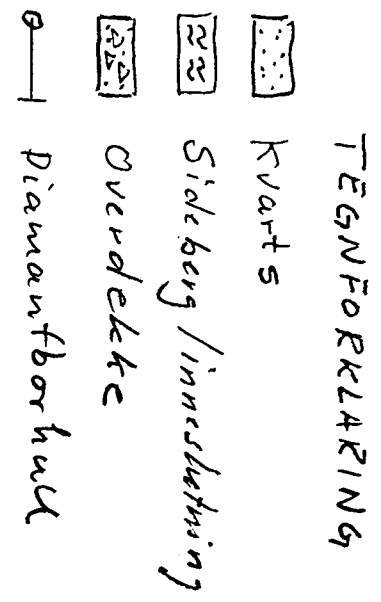 TEGNFORKLARING
Kvarts
Sideberg / inneslutning
Overdekke
Diamantborhull